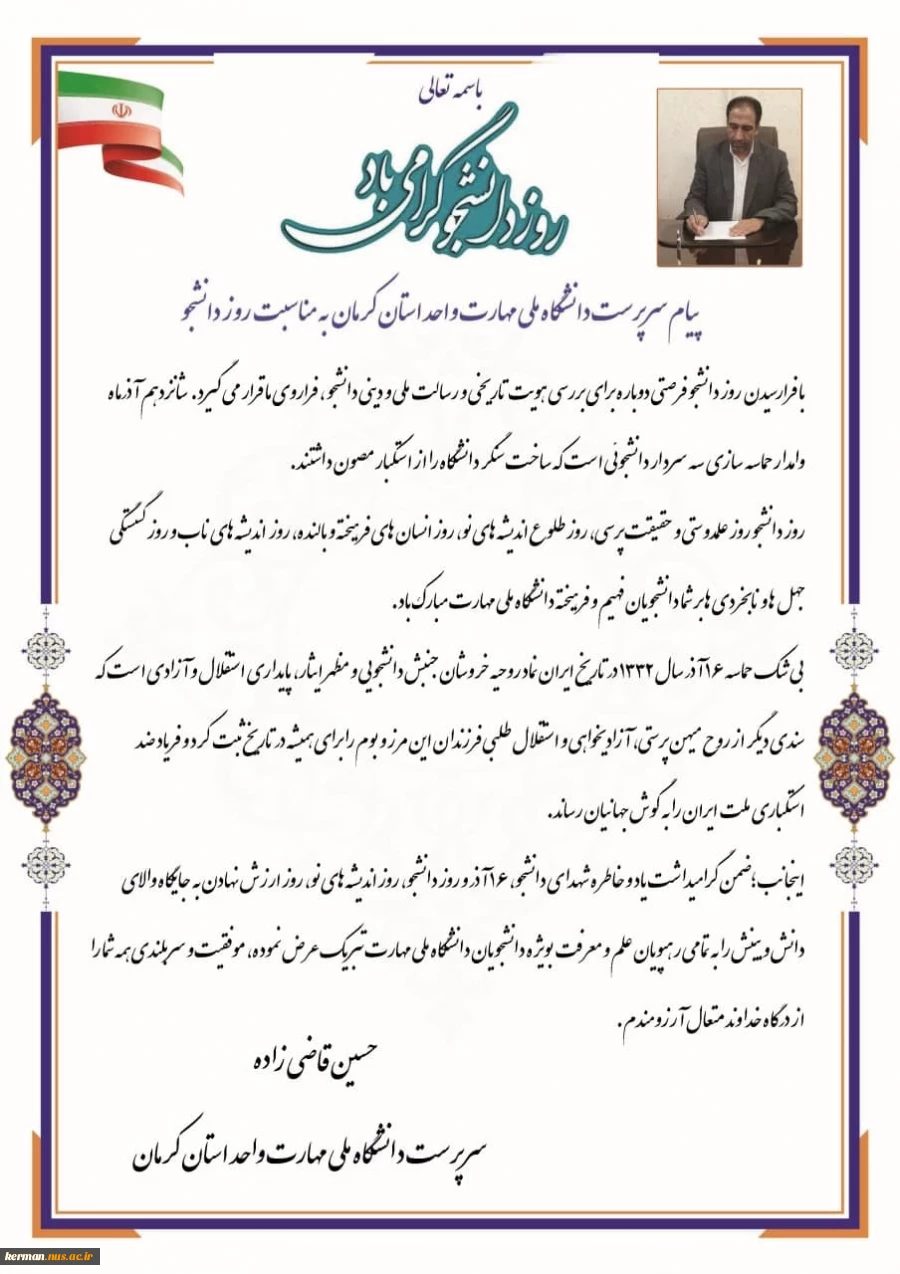 باسمه تعالی
روز دانشجو گرامی باد
پیام سرپرست دانشگاه ملی مهارت واحد استان کرمان به مناسبت روز دانشجو
با فرارسیدن روز دانشجو فرصتی دوباره برای بررسی هویت تاریخی و رسالت ملی و دینی دانشجو، فراروی ما قرار می گیرد. شانزدهم آذرماه
وامدار حماسه سازی سه سردار دانشجوئی است که ساخت سنگر دانشگاه را از استکبار مصون داشتند.
روز دانشجو روز علم دوستی و حقیقت پرسی، روز طلوع اندیشه های نو، روز انسان های فرهیخته و بالنده، روز اندیشه های ناب و روز گسستگی
جهل ها و نابخردی ها بر شما دانشجویان فهیم و فرهیخته دانشگاه ملی مهارت مبارک باد.
بی شک حماسه ۱۶ آذر سال ۱۳۳۲ در تاریخ ایران نماد روحیه خروشان جنبش دانشجویی و مظهر ایثار، پایداری استقلال و آزادی است که
سندی دیگر از روح میهن پرستی، آزادیخواهی و استقلال طلبی فرزندان این مرز و بوم را برای همیشه در تاریخ ثبت کرد و فریاد ضد
استکباری ملت ایران را به گوش جهانیان رساند.
اینجانب؛ ضمن گرامیداشت یاد و خاطره شهدای دانشجو، ۱۶ آذر و روز دانشجو، روز اندیشه های نو، روز ارزش نهادن به جایگاه والای
دانش و بینش را به تمامی رهپویان علم و معرفت بویژه دانشجویان دانشگاه ملی مهارت تبریک عرض نموده، موفقیت و سربلندی همه شما را
از درگاه خداوند متعال آرزومندم.
حسین قاضی زاده
سرپرست دانشگاه ملی مهارت واحد استان کرمان
kerman.nus.ac.ir